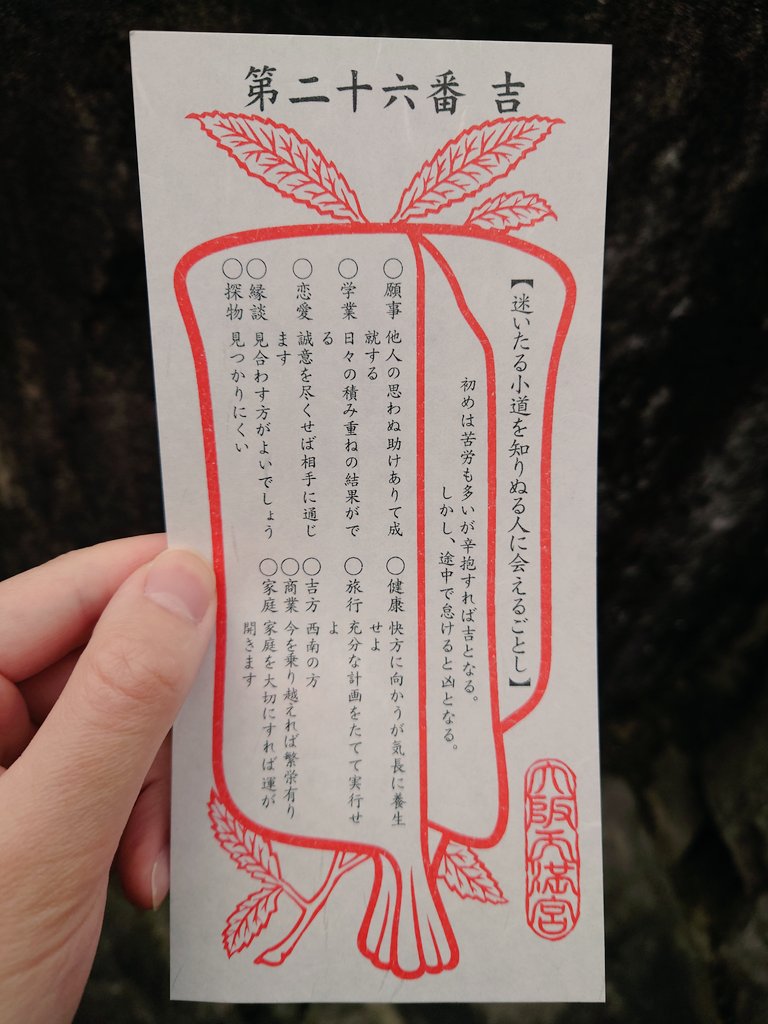 第二十六番 吉
【迷いたる小道を知りぬる人に会えるごとし】
初めは苦労も多いが辛抱すれば吉となる。
しかし、途中で怠けると凶となる。
○願事 他人の思わぬ助けありて成
就する
○学業 日々の積み重ねの結果がで
る
○恋愛 誠意を尽くせば相手に通じ
ます
○縁談 見合わす方がよいでしょう
○探物 見つかりにくい
○健康 快方に向かうが気長に養生
せよ
○旅行 充分な計画をたてて実行せ
よ
○吉方 西南の方
○商業 今を乗り越えれば繁栄有り
○家庭 家庭を大切にすれば運が
開きます
大阪天満宮